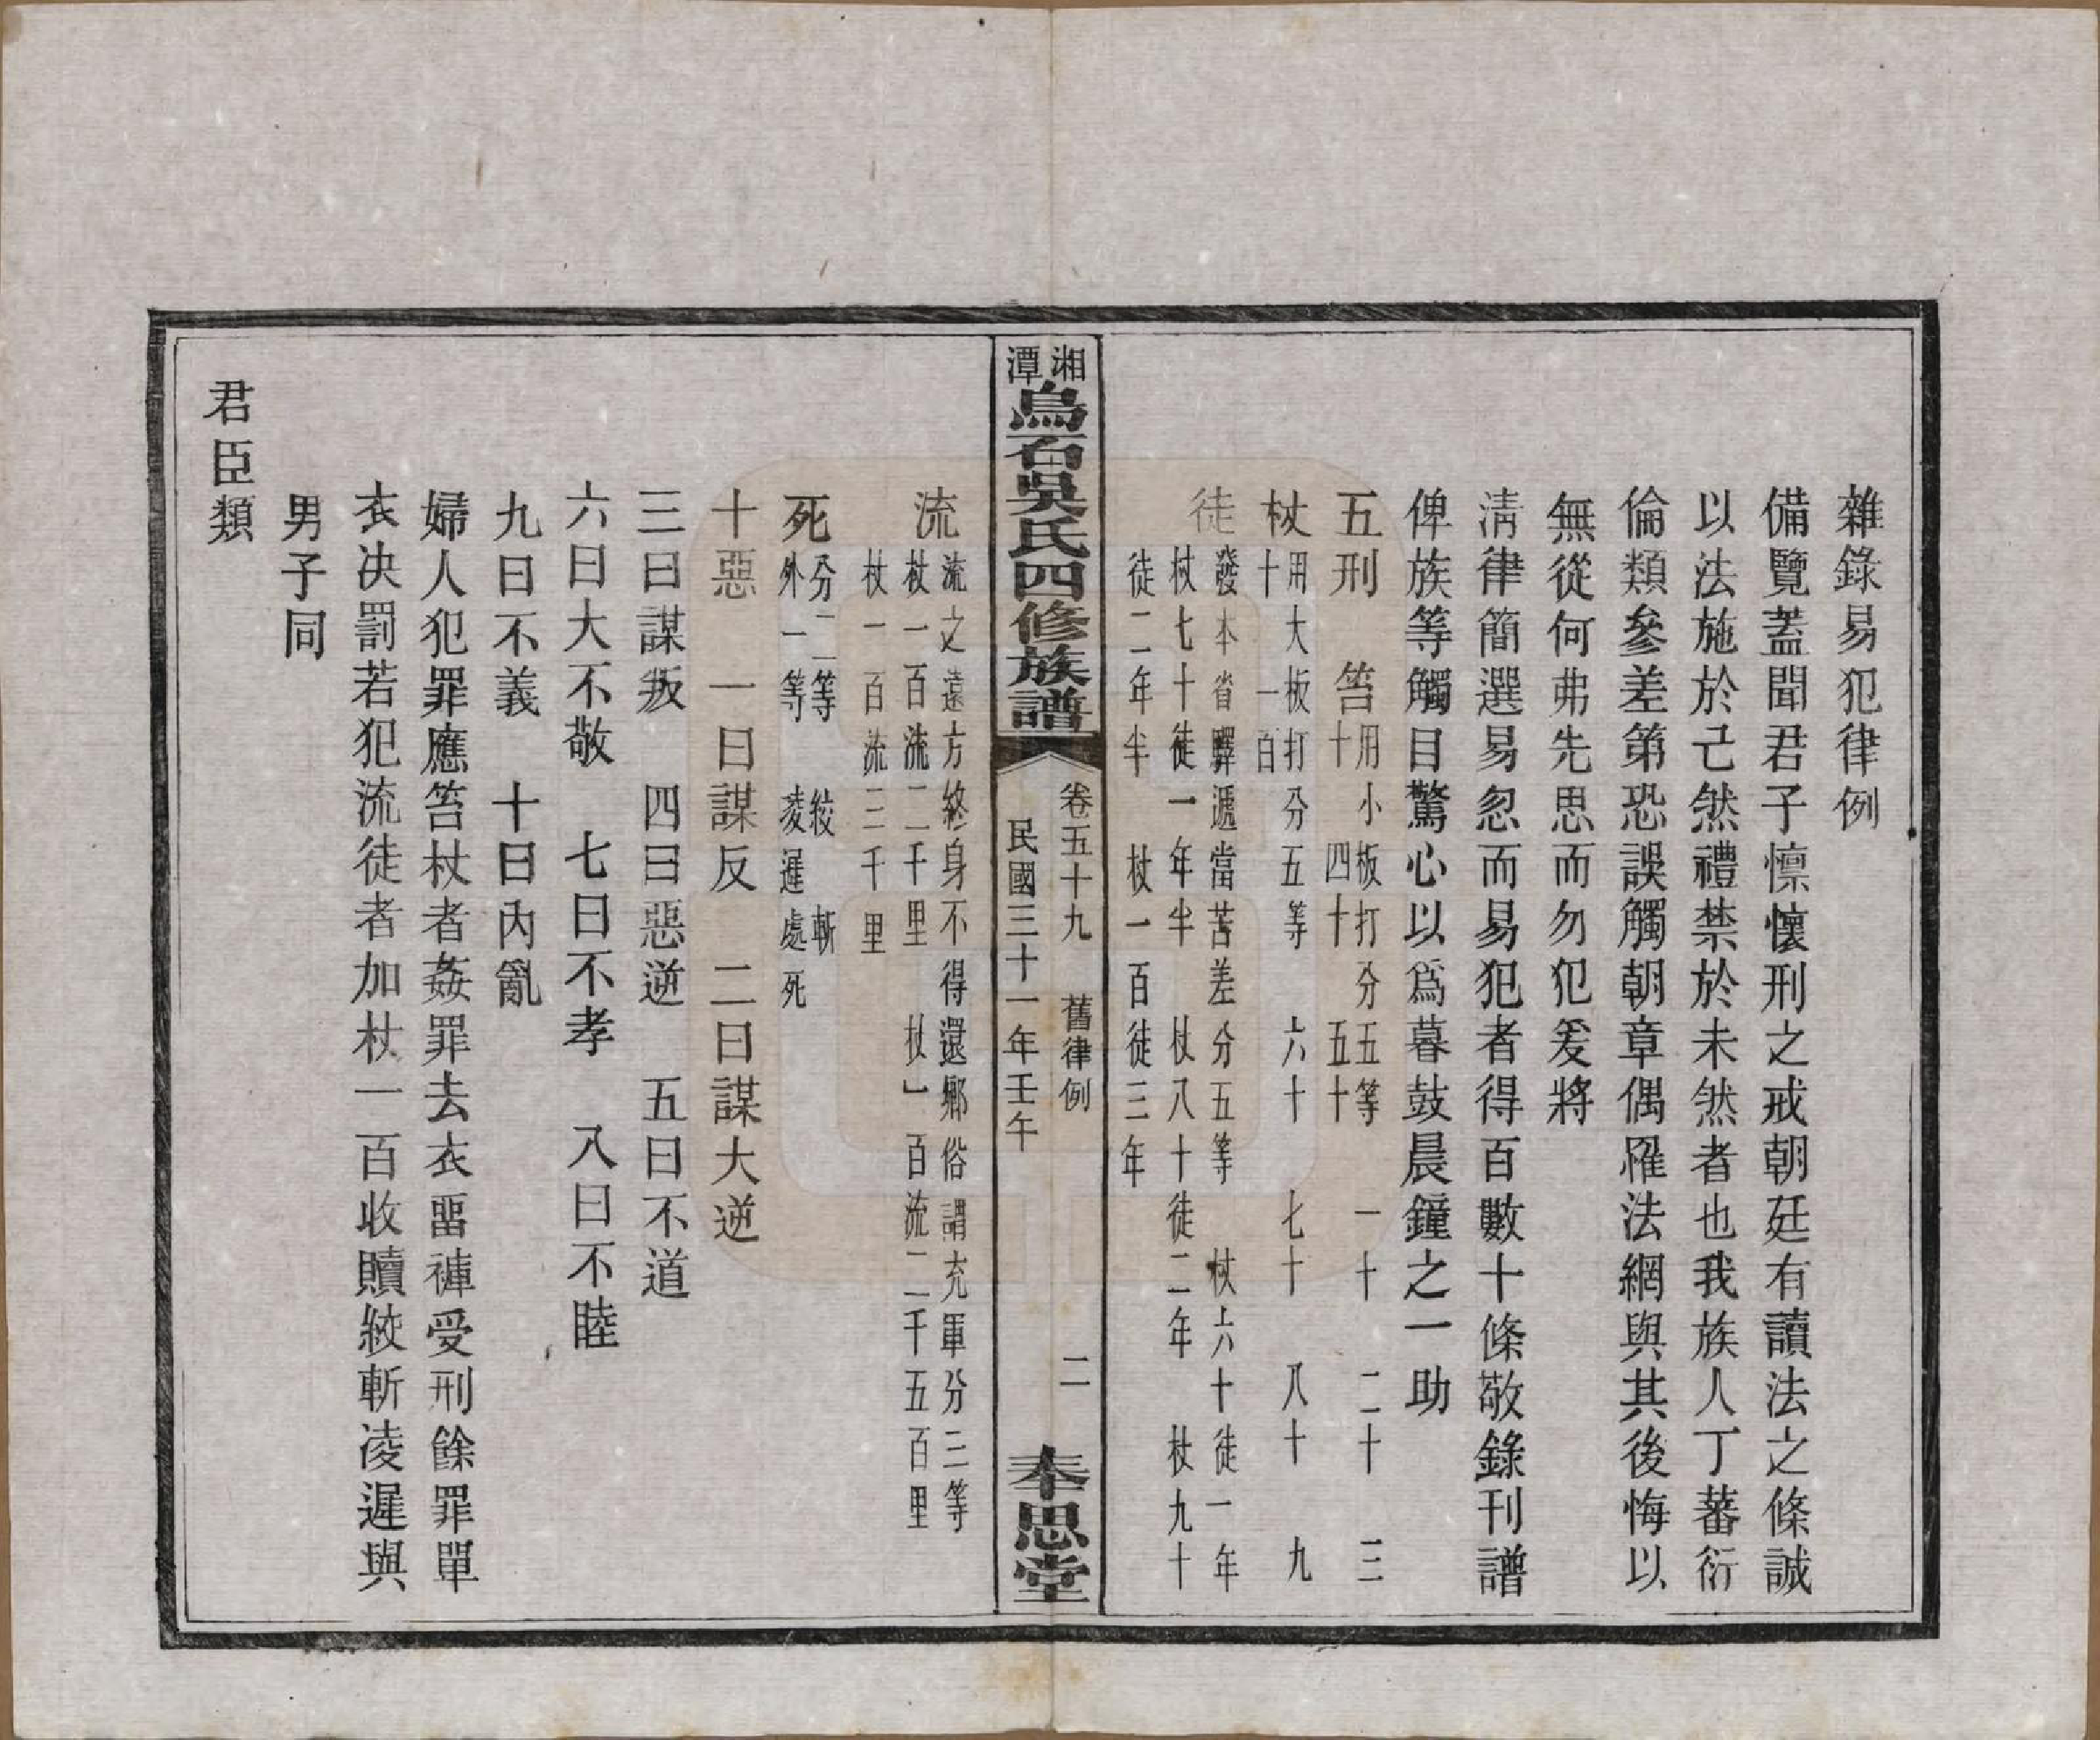 雜錄易犯律例
備覽蓋聞君子懍懷刑之戒朝廷有讀法之條誠
以法施於己然禮禁於未然者也我族人丁蕃衍
倫類參差第恐誤觸朝章偶罹法網與其後悔以
無從何弗先思而勿犯爰將
清律簡選易忽而易犯者得百數十條敬錄刊譜
俾族等觸目驚心以爲暮鼓晨鐘之一助
五刑 笞 用小板打分五等 一十 二十 三
十 四十 五十
杖 用大板打分五等 六十 七十 八十 九
十 一百
徒 發本省驛遞當苦差分五等 杖六十徒一年
杖七十徒一年半 杖八十徒二年 杖九十
徒二年半 杖一百徒三年
湘潭烏石吳氏四修族譜 卷五十九 舊律例 二
民國三十一年壬午 奉思堂
流 流之遠方終身不得還鄉俗謂充軍分三等
杖一百流二千里 杖一百流二千五百里
杖一百流三千里
死 分二等 絞 斬
外一等 凌遲處死
十惡 一曰謀反 二曰謀大逆
三曰謀叛 四曰惡逆 五曰不道
六曰大不敬 七曰不孝 八曰不睦
九曰不義 十曰內亂
婦人犯罪應笞杖者姦罪去衣畱褲受刑餘罪單
衣决罰若犯流徒者加杖一百收贖絞斬凌遲與
男子同
君臣類